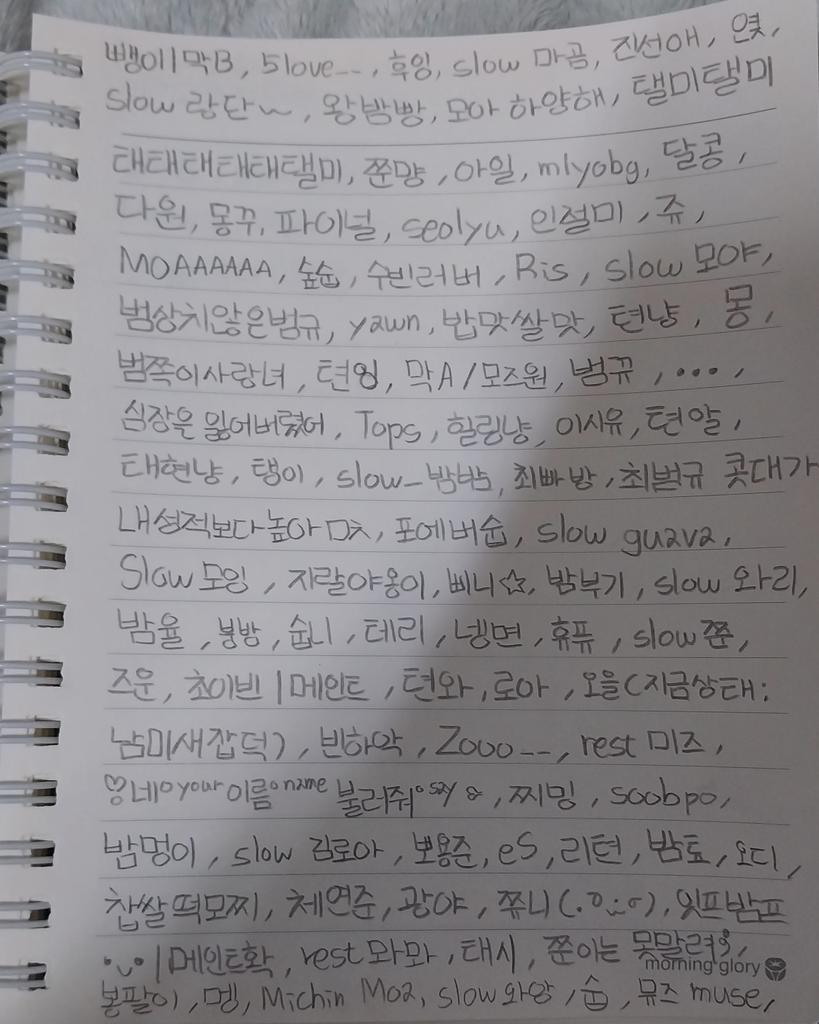 뺑이|막B, 5love--, 후잉, slow 마곰, 진선애, 엿,
slow 랑단~, 왕밤빵, 모아 하양해, 탤미탤미
태태태태태탤미, 쭌먕, 아일, mlyobg, 달콩,
다원, 몽꾸, 파이널, seolyu, 인절미, 쥬,
MOAAAAAA, 숲숩, 수빈러버, Ris, slow 모야,
범상치않은범규, yawn, 밥맛쌀맛, 텬냥, 몽,
범쪽이사랑녀, 텬잉, 막A/모즈원, 범뀨, ...,
심장을 잃어버렸어, Tops, 힐링냥, 이시유, 텬알,
태현냥, 탱이, slow_밤밤, 최빠방, 최범규 콧대가
내성적보다높아, 포에버숩, slow guava,
Slow 모잉, 지랄야옹이, 삐니☆, 밤부기, slow 와리,
밤율, 뿅방, 숩니, 테리, 넹면, 휴퓨, slow쭌,
즈운, 초이빈|메인트, 텬와, 로아, 오을(지금상태:
남미새잡덕), 빈하악, Zooo--, rest 미즈,
♡네o your 이름o name 불러줘o say &, 찌밍, soobpo,
밤멍이, slow 김로아, 뽀용준, eS, 리텬, 밤토, 오디,
찹쌀떡모찌, 체연준, 광야, 쮸니, 잇프밤프
•ᴗ•|메인트확, rest 와와, 태시, 쭌이는 못말려,
morning glory
볼팔이, 멩, Michin Moa, slow와앙, 숩, 뮤즈 muse,